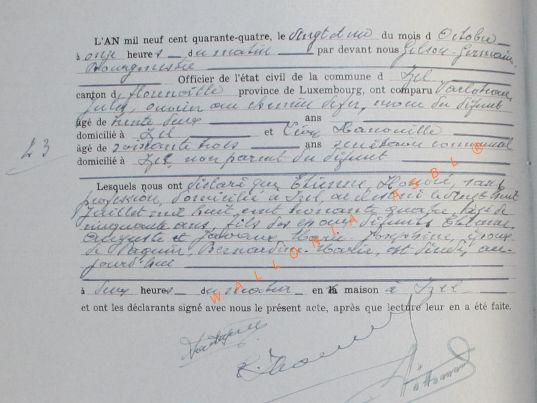 L'AN mil neuf cent quarante-quatre, le vingt deux du mois d'Octobre
à onze heures du matin par devant nous Gilson Germain,
Bourgmestre
Officier de l'état civil de la commune d' Izel
canton de Florenville province de Luxembourg, ont comparu
Jules, ouvrier au chemin de fer, du défunt
âgé de trente deux ans
domicilié à Izel et Léon Lanouille
43
âgé de soixante trois ans communal
domicilié à Izel, non parent du défunt
Lesquels nous ont déclaré que Etienne Honoré, sans
profession, domicilié à Izel,
juillet mil huit cent nonante quatre, âgé de
cinquante ans, fils des époux défunts Etienne
Auguste et Marie Joséphine, époux
de Bernardine Marie, est décédé au-
jourd'hui
à deux heures du matin en la maison à Izel
et ont les déclarants signé avec nous le présent acte, après que lecture leur en a été faite.
WALLONIA ASBL ®